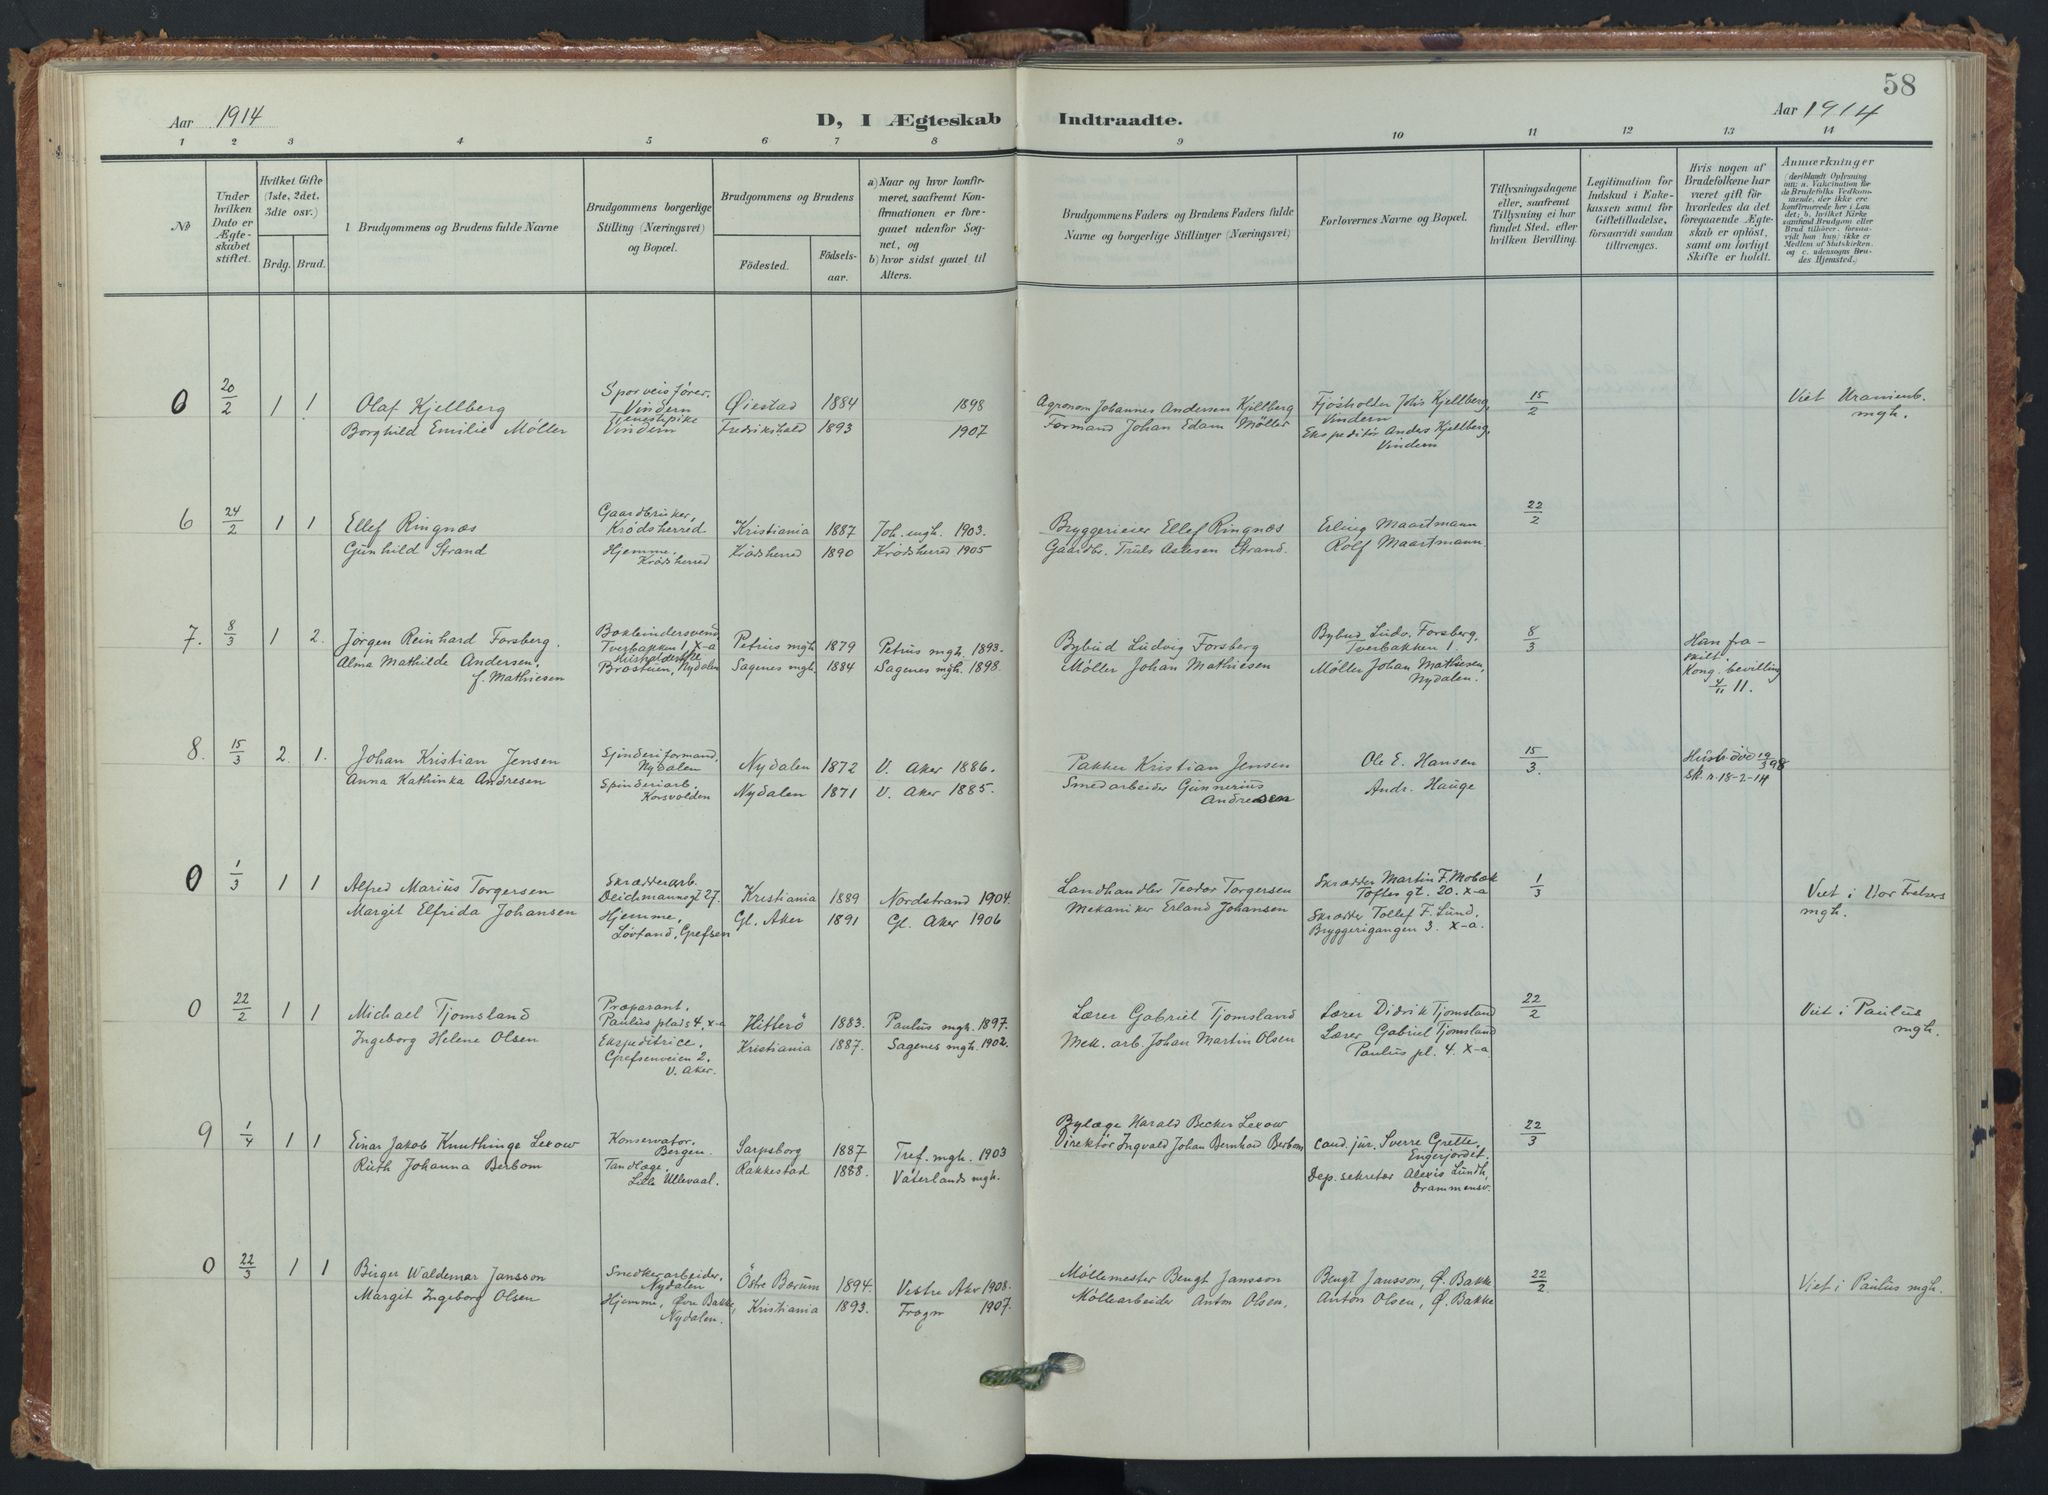 58
Aar 1914
D, I Ægteskab Indtraadte.
Aar 1914
1 2 3 4 5 6 7 8 9 10 11 12 13 14
No
Under hvilken Dato er Ægteskabet stiftet.
Hvilket Gifte (1ste, 2det, 3die osv.)
Brdg. Brud.
Brudgommens og Brudens fulde Navne
Brudgommens borgerlige Stilling (Næringsvei) og Bopæl.
Brudgommens og Brudens
Födested. Födselsaar.
a) Naar og hvor konfirmeret, saafremt Konfirmationen er foregaaet udenför Sognet, og
b) hvor sidst gaaet til Alters.
Brudgommens Faders og Brudens Faders fulde Navne og borgerlige Stillinger (Næringsvei)
Forlovernes Navne og Bopæl.
Tillysningsdagene eller, saafremt Tillysning ei har fundet Sted, efter hvilken Bevilling.
Legitimation for Indskud i Enkekassen samt för Giftetilladelse, forsaavidt saadan tiltrænges.
Hvis nogen af Brudefolkene har været gift för hvorledes da det foregaaende Ægteskab er oplöst, samt om lovligt Skifte er holdt.
Anmærkninger
0 20/2 1 1 Olaf Kjellberg Sporveisfører, Vindern Øiestad 1884 1898 Agronom Johannes Andersen Kjellberg Fjøsholder Johs Kjellberg, Vindern 15/2 Viet Uranienb. mgh.
Borghild Emilie Møller Tjenestpike Vindern Fredrikshald 1893 1907 Formand Johan Edam Møller Ekspeditør Anders Kjellberg, Vindern
6 24/2 1 1 Ellef Ringnæs Gaardbruker, Krødsherred Kristiania 1887 Joh. mgh. 1903. Bryggerieier Ellef Ringnæs Erling Maartmann 22/2
Gunhild Strand Hjemme, Krødsherred Krødsherred 1890 Krødsherred 1905 Gaardbr. Truls Aslesen Strand. Rolf Maartmann
7. 8/3 1 2. Jørgen Reinhard Forsberg. Bokbindersvend, Tverbakken 1, X-a Petrus mgh 1879 Petrus mgh. 1893. Bybud Ludvig Forsberg Bybud Ludv. Forsberg, Tverbakken 1. 8/3 Han fraskilt. Kong. bevilling 4/11 11.
Alma Mathilde Andersen, f. Mathiesen Nydalen Sagenes mgh. 1884 Sagenes mgh. 1898. Møller Johan Mathiesen Møller Johan Mathiesen, Nydalen.
8. 15/3 2. 1. Johan Kristian Jensen Spinderiformand, Nydalen Nydalen 1872 V. Aker 1886. Pakker Kristian Jensen Ole E. Hansen 15/3. Hustr. død 19/3 98 Sk. r. 18-2-14
Anna Kathinka Andresen Spinderiarb. Korsvolden Nydalen 1871 V. Aker 1885. Smedarbeider Gunnerius Andresen Andr. Hauge
0 1/3 1 1 Alfred Marius Torgersen Skrædderarb. Deichmannsgt 27. Kristiania 1889 Nordstrand 1904. Landhandler Teodor Torgersen Skrædder Martin F. Mobæk Toftes gt. 20. X-a 1/3 Viet i Vor Frelsers mgh.
Margit Elfrida Johansen Hjemme, Grefsen Gl. Aker 1891 Gl. Aker 1906 Mekaniker Erland Johansen Skrædder Tollef F. Lund, Bryggerigangen 3. X-a.
0 22/2 1 1 Michael Tjomsland Præparant. Paulus plads 4, X-a Hitterö 1883. Paulus mgh. 1897. Lærer Gabriel Tjomsland Lærer Didrik Tjomsland 22/2 Viet i Paulus mgh.
Ingeborg Helene Olsen Ekspeditrice, Grefsenveien 2. V. Aker. Kristiania 1887. Sagenes mgh. 1902. Mek. arb. Johan Martin Olsen Lærer Gabriel Tjomsland Paulus pl. 4. X-a
9 1/4 1 1 Einar Jakob Knuthinge Lexow Konservator, Bergen. Sarpsborg 1887 Tref. mgh. 1903 Bylæge Harald Becker Lexow cand. jur. Sverre Grette, Engerjordet. 22/3
Ruth Johanna Berbom Tandlæge, Lille Ullevaal. Rakkestad 1888. Vaterlands mgh. Direktör Ingvald Johan Bernhard Berbom Dep. sekretær Alexis Lundh, Drammensv.
0 22/3 1 1 Birger Waldemar Jansson Snedkerarbeider, Nydalen Östre Bærum 1894. Vestre Aker 1908. Møllemester Bengt Jansson Bengt Jansson, Ø. Bakke 22/2 Viet i Paulus mgh.
Margit Ingeborg Olsen Hjemme, Øvre Bakke, Nydalen. Kristiania 1893. Frogn 1907. Møllearbeider Anton Olsen, Anton Olsen, Ø. Bakke